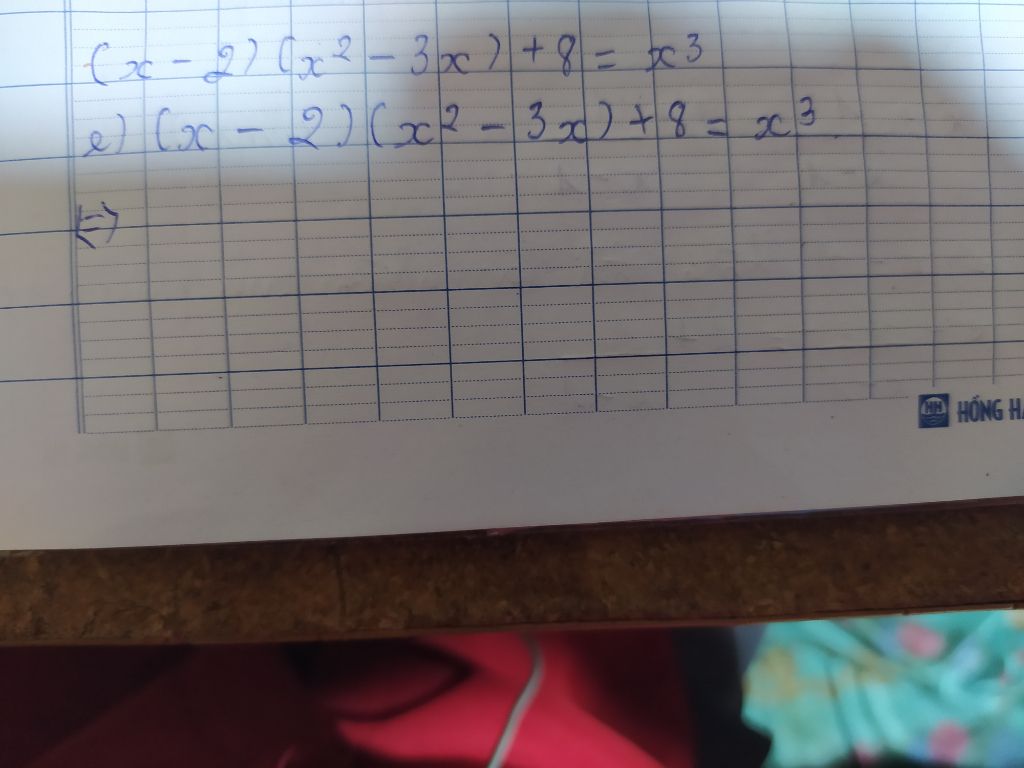 (x - 2)(x² - 3x) + 8 = x³
e) (x - 2)(x² - 3x) + 8 = x³
⇔
HH HỒNG HA